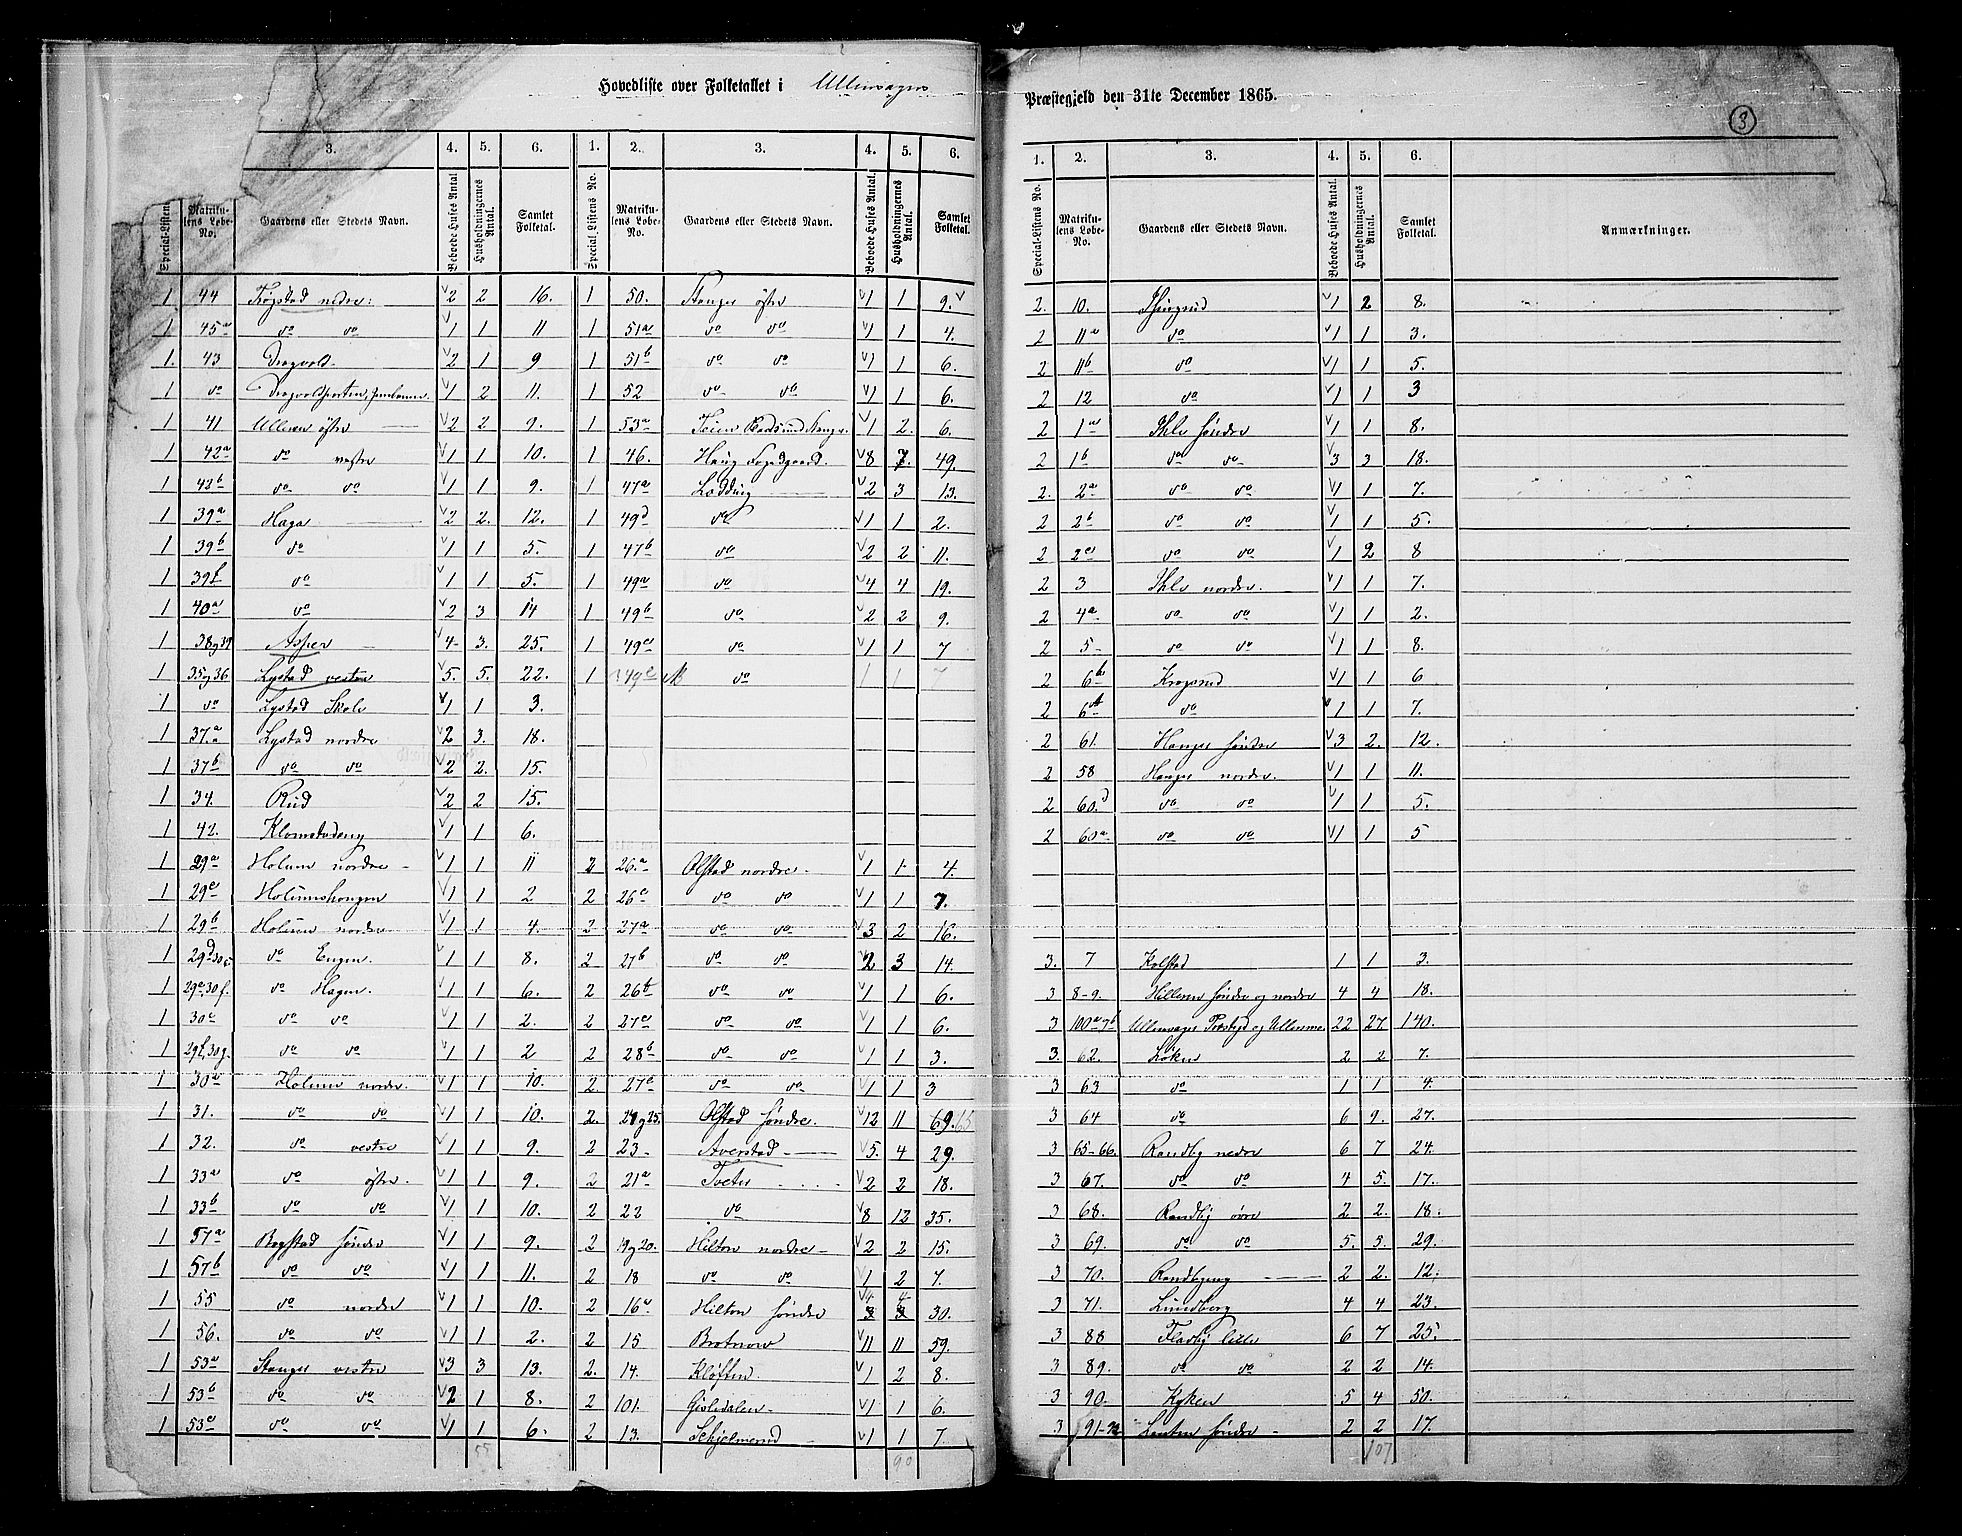 Hovedliste over Folketallet i Ullensagers Præstegjeld den 31te December 1865.
3
3. 4. 5. 6. 1. 2. 3. 4. 5. 6.
Special-Listen Matrikulens Løbe-No. Gaardens eller Stedets Navn. Beboede Huses Antal Husholdningernes Antal. Samlet Folketal. Special-Listens No. Matrikulens Løbe-No. Gaardens eller Stedets Navn. Beboede Huses Antal. Husholdningernes Antal. Samlet Folketal.
1 44 2 2 16. 1 50. Stanger østre 1 1 9.
1 45a do do 1 1 11 1 51a do do 1 1 4.
1. 43 Dragvold 2 1 9 1 51b do do 1 1 6.
1 do 1 2 11. 1 52 do do 1 1 6.
1 41 Ullern østre 2 2 9. 1 53a 1 2. 6.
1 42a do vestre 1 1 10. 1 46. Haug Fogedgaard. 8 7. 49.
1 42b do do 1 1 9. 1 47a Lødding 2 3 13.
1 39a Haga 2 2. 12. 1 49d do 1 1 2.
1 39b do 1 1 5. 1 47b do 2 2 11.
1 39f do 1 1 5. 1 49a do 4 4 19.
1 40a do 2 3 14 1 49b do 2 2 9.
1 38og39 Asper 4 3. 25. 1 49c do 1 1 7
1 35og36 Lystad vestre 5. 5. 22. 1 49e do 1 1 7
1 do Lystad Skole 1 1 3.
1 37.a Lystad nordre 2 3. 18.
1 37b do do 2 2. 15.
1 34. Rud 2 2 15.
1 42. Klomstadeng 1 1 6.
1 29a Holum nordre 1 1 11 2 26.a Olstad nordre. 1 1 4.
1 29e Holumshougen 1 1 2 2 26c do do 1 1 7.
1 29b Holum nordre 1 1 4. 2 27a do do 3 2 16.
1 29d30c do Engen. 1 1 8. 2 27b do do 2 3 14.
1 29a,30f. do Hagen. 1 1 6. 2 26b do do 1 1 6.
1 30e do do 1 1 2. 2 27c do do 1 1 6.
1 29f,30g. do do 1 1 2 2 28b do do 1 1 3.
1 30a Holum nordre. 1 1 10. 2. 27e do do 1 1 3
1 31. do do 1 1 10. 2. 24og25. Olstad søndre. 12 11 69. 65
1 32. do vestre 1 1 9. 2 23 Averstad 5. 4 29.
1 33a do østre. 1 1 9. 2 21a Tveter 2 2 18.
1 33b do do 1 1 10. 2 22 do 8 12 35.
1 57a Bogstad søndre 1 1 9. 2 19og20. Hilton nordre 2 2 15.
1 57b do do 1 1 11. 2 18 do do 1 2 7.
1 55 do nordre 1 1 10. 2 16a Hilton søndre 4 4 30.
1 56. do do 1 1 2. 2 15 Brotnow 11 11 59.
1 53a Stanger vestre 3 3 13. 2. 14. Kløften. 1 2 8.
1 53b do do 2 1 8. 2 101. Gisledalen 1 1 6.
1 53c do do 1 1 6. 2 13. Schjelmerud 1 1 7.
55 90
1. 2. 3. 4. 5. 6.
Special-Listens No. Matrikulens Løbe-No. Gaardens eller Stedets Navn. Beboede Huses Antal. Husholdningernes Antal. Samlet Folketal. Anmærkninger.
2. 10. 1 2 8.
2 11a do 1 1 3.
2 11b do 1 1 5.
2 12 do 1 1 3
2 1a Ihle søndre 1 1 8.
2 1b do do 3 3 18.
2. 2a do do 1 1 7.
2 2b do do 1 1 5.
2 2c do do 1 2 8
2 3 Ihle nordre. 1 1 7.
2 4a do do 1 1 2.
2 5 do do 1 1 8.
2 6b Krogsrud 1 1 6
2 6 do 1 1 7.
2 61. Hanger søndre 3 2. 12.
2 58 Hanger nordre. 1 1 11.
2 60.d do do 1 1 5.
2 60a do do 1 1 5
3. 7 Kolstad 1 1 3.
3 8-9. Hillern søndre og nordre 4 4 18.
3 100a7b Ullensager Prestegd og Ullernsmo 22 27 140.
3. 62. Løken 2 2 7.
3 63 do 1 1 4.
3 64 do 6 9. 27.
3 65-66. Randby nedre 6 7 24.
3 67. do do 4 5. 17.
3 68. Randby øvre 2 2. 18.
3 69. do do 5. 5. 29.
3 70. Randbyeng 2 2. 12.
3 71. Lundberg 4 4 23.
3 88 Fladby lille 6 7 25.
3 89. do do 2 2 14.
3 90. Kyken 5 4 50.
3 Lauten søndre 2 2 17.
107